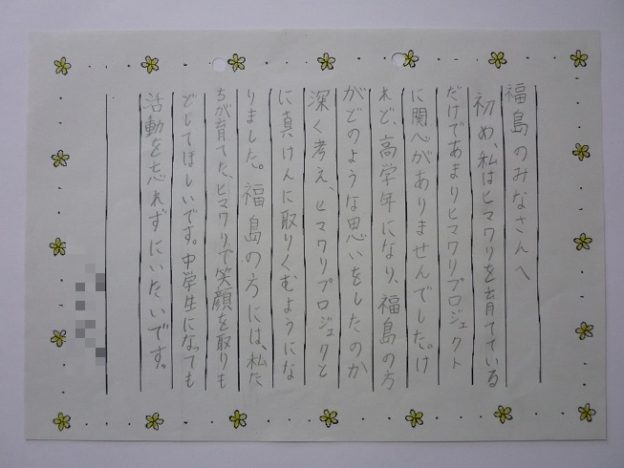 福島のみなさんへ
初め、私はヒマワリを育てている
だけであまりヒマワリプロジェクト
に関心がありませんでした。け
れど、高学年になり、福島の方
がどのような思いをしたのか
深く考え、ヒマワリプロジェクト
に真けんに取りくむようにな
りました。福島の方には、私た
ちが育てた、ヒマワリで笑顔を取りも
どしてほしいです。中学生になっても
活動を忘れずにいたいです。